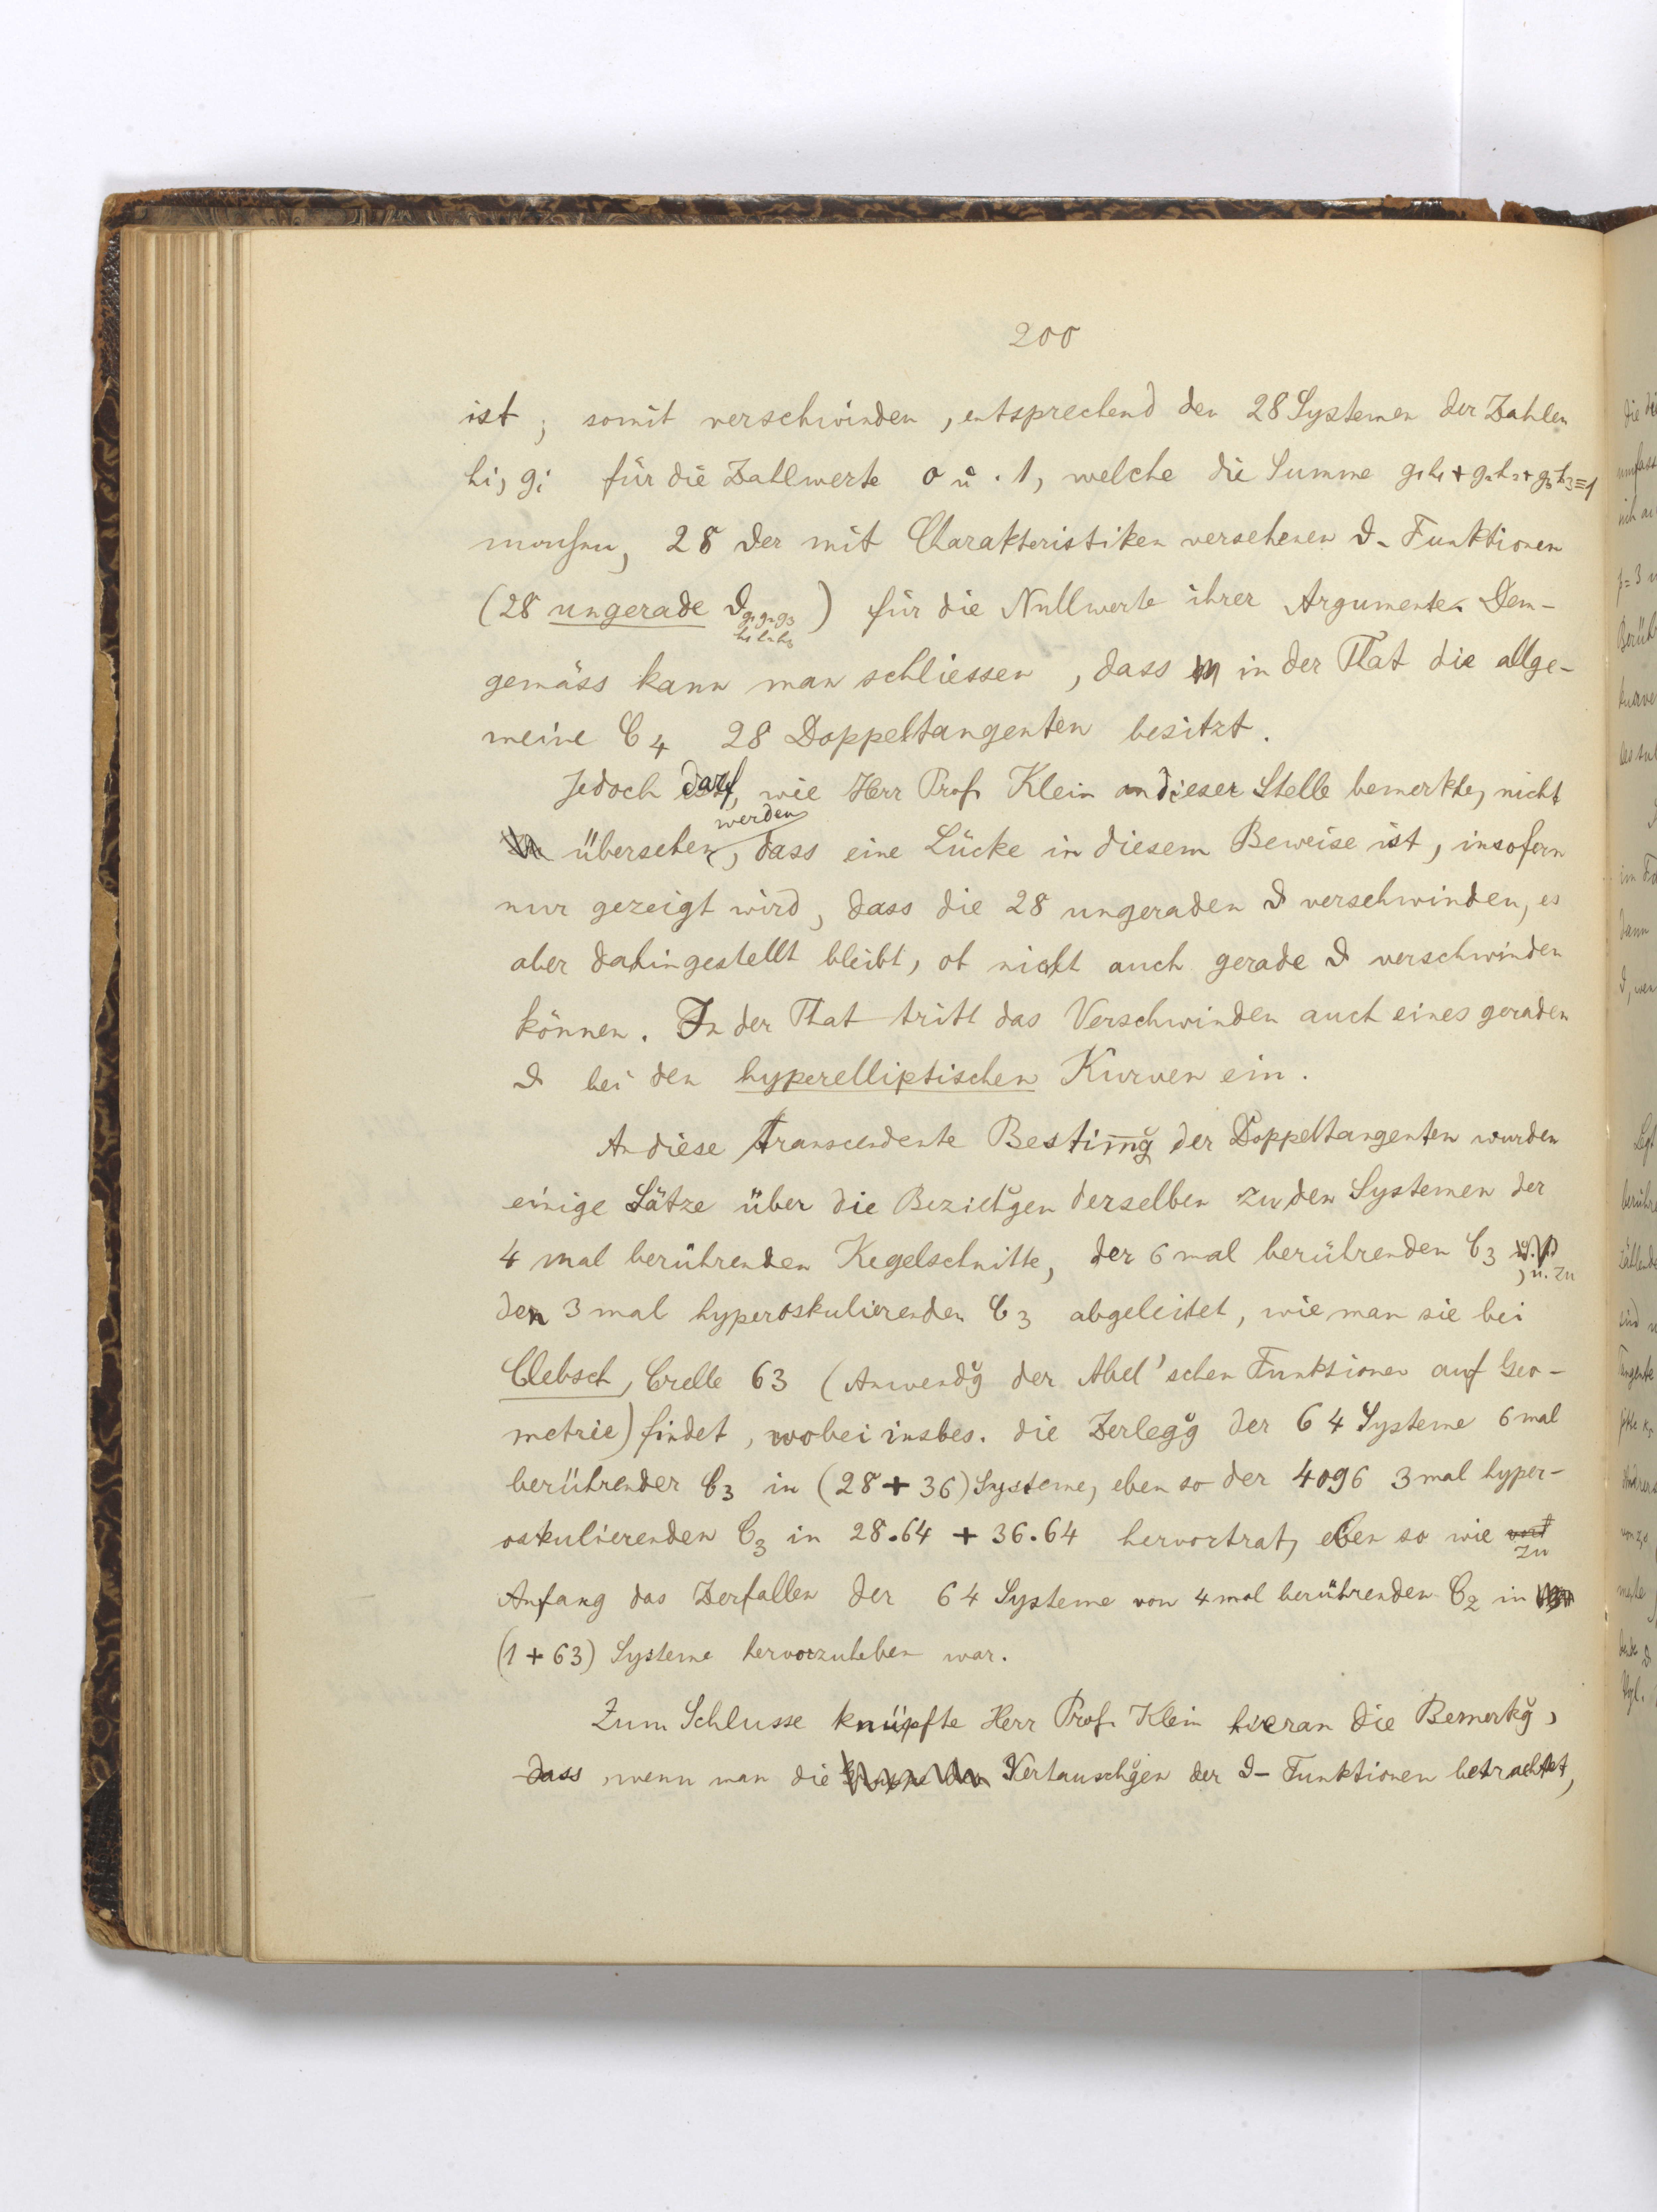 200
ist, somit verschwinden, entsprechend den 28 Systemen der Zahlen
hi, gi für die Zahlwerte 0 u. 1, welche die Summe g₁h₁ + g₂h₂ + g₃h₃ ≡ 1
machen, 28 der mit Charakteristiken versehenen ϑ-Funktionen
(28 ungerade ϑ g₁g₂g₃ h₁h₂h₃) für die Nullwerte ihrer Argumente. Dem-
gemäss kann man schliessen, dass in der That die allge-
meine C₄ 28 Doppeltangenten besitzt.
Jedoch darf, wie Herr Prof. Klein an dieser Stelle bemerkte, nicht
übersehen werden, dass eine Lücke in diesem Beweise ist, insofern
nur gezeigt wird, dass die 28 ungeraden ϑ verschwinden, es
aber dahingestellt bleibt, ob nicht auch gerade ϑ verschwinden
können. In der That tritt das Verschwinden auch eines geraden
ϑ bei den hyperelliptischen Kurven ein.
An diese transcendente Bestim̅ğ der Doppeltangenten wurden
einige Sätze über die Beziehğen derselben zu den Systemen der
4 mal berührenden Kegelschnitte, der 6 mal berührenden C₃, u. zu
den 3 mal hyperoskulierenden C₃ abgeleitet, wie man sie bei
Clebsch, Crelle 63 (Anwendğ der Abel'schen Funktionen auf Geo-
metrie) findet, wobei insbes. die Zerlegğ der 64 Systeme 6 mal
berührender C₃ in (28 + 36) Systeme, eben so der 4096 3 mal hyper-
oskulierenden C₃ in 28.64 + 36.64 hervortrat, eben so wie zu
Anfang das Zerfallen der 64 Systeme von 4 mal berührenden C₂ in
(1 + 63) Systeme hervorzuheben war.
Zum Schlusse knüpfte Herr Prof. Klein hieran die Bemerkğ,
dass, wenn man die Vertauschğen der ϑ-Funktionen betrachtet,